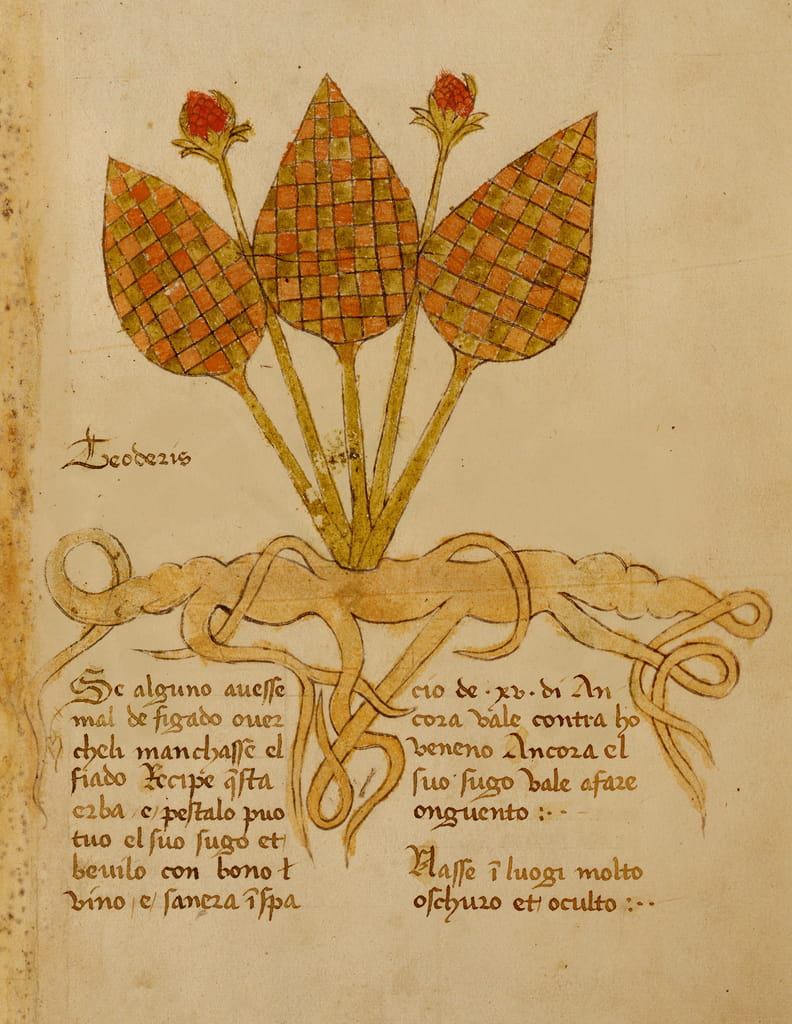 Teoderis
Se alguno auesse
mal de figado ouer
cheli manchasse el
fiado Recipe q̃sta
erba e pestalo puo
tuo el suo sugo et
beuilo con bono t
vino e sanera ĩ spa
cio de · xv · di An
cora vale contra ho
veneno Ancora el
suo sugo vale afare
onguento :··
Nasse ĩ luogi molto
oschuro et oculto :··